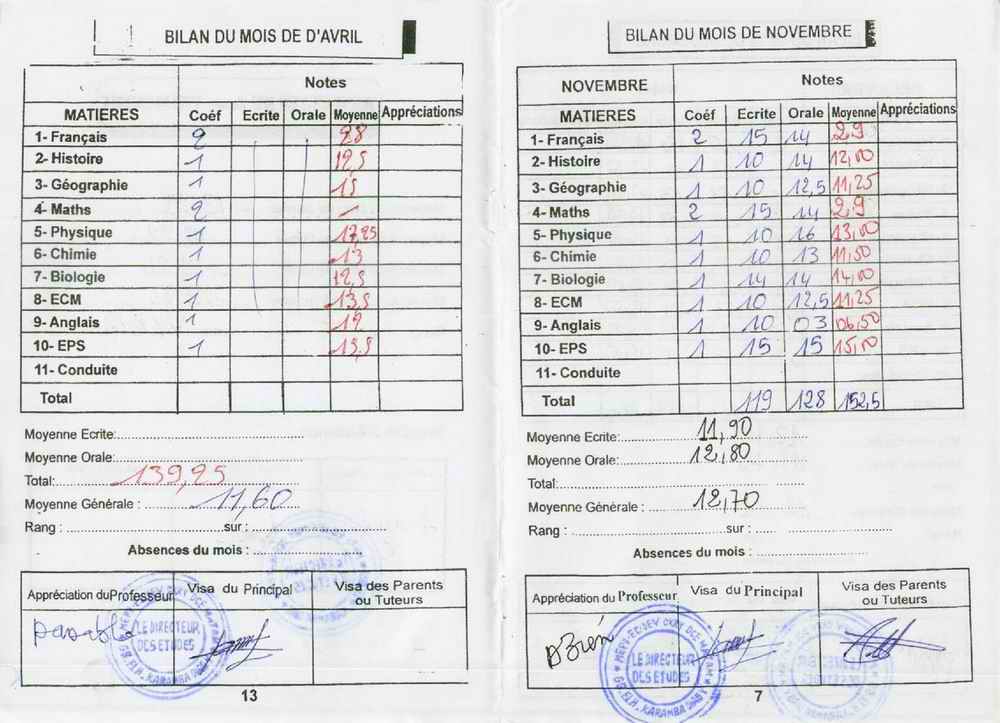 BILAN DU MOIS DE D'AVRIL
Notes
MATIERES Coéf Ecrite Orale Moyenne Appréciations
1- Français 2 28
2- Histoire 1 12,5
3- Géographie 1 15
4- Maths 2 —
5- Physique 1 17,25
6- Chimie 1 13
7- Biologie 1 12,5
8- ECM 1 13,5
9- Anglais 1
10- EPS 1 13,5
11- Conduite
Total
Moyenne Ecrite:
Moyenne Orale:
Total: 139,25
Moyenne Générale : 11,60
Rang : sur :
Absences du mois :
Appréciation du Professeur Visa du Principal Visa des Parents ou Tuteurs
passable
LE DIRECTEUR
DES ETUDES
13
BILAN DU MOIS DE NOVEMBRE
NOVEMBRE Notes
MATIERES Coéf Ecrite Orale Moyenne Appréciations
1- Français 2 15 14 29
2- Histoire 1 10 14 12,00
3- Géographie 1 10 12,5 11,25
4- Maths 2 15 14 29
5- Physique 1 10 16 13,00
6- Chimie 1 10 13 11,50
7- Biologie 1 14 14 14,00
8- ECM 1 10 12,5 11,25
9- Anglais 1 10 03 06,50
10- EPS 1 15 15 15,00
11- Conduite
Total 119 128 152,5
Moyenne Ecrite: 11,90
Moyenne Orale: 12,80
Total:
Moyenne Générale : 12,70
Rang : sur :
Absences du mois :
Appréciation du Professeur Visa du Principal Visa des Parents ou Tuteurs
A.Bien
LE DIRECTEUR
DES ETUDES
7